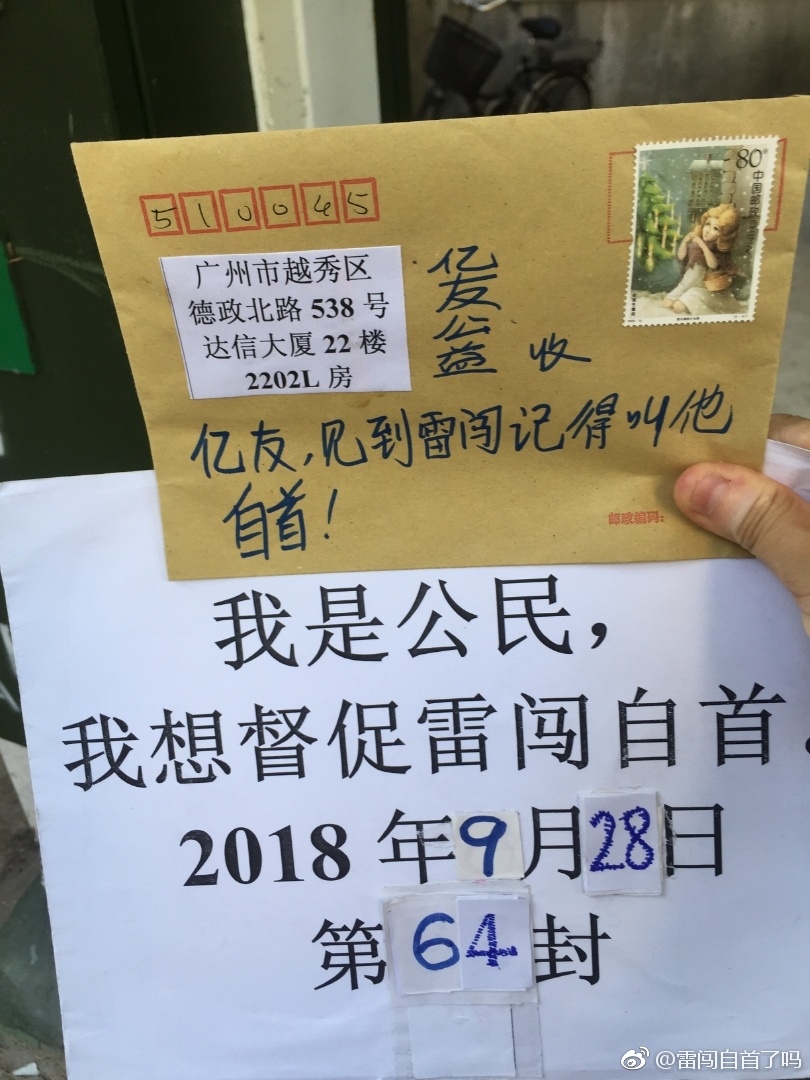 510045
80分
中国邮政
广州市越秀区
德政北路 538 号
达信大厦 22 楼
2202L 房
亿友公益 收
亿友,见到雷闯记得叫他
自首!
邮政编码:
我是公民,
我想督促雷闯自首.
2018 年 9 月 28 日
第 64 封
@雷闯自首了吗